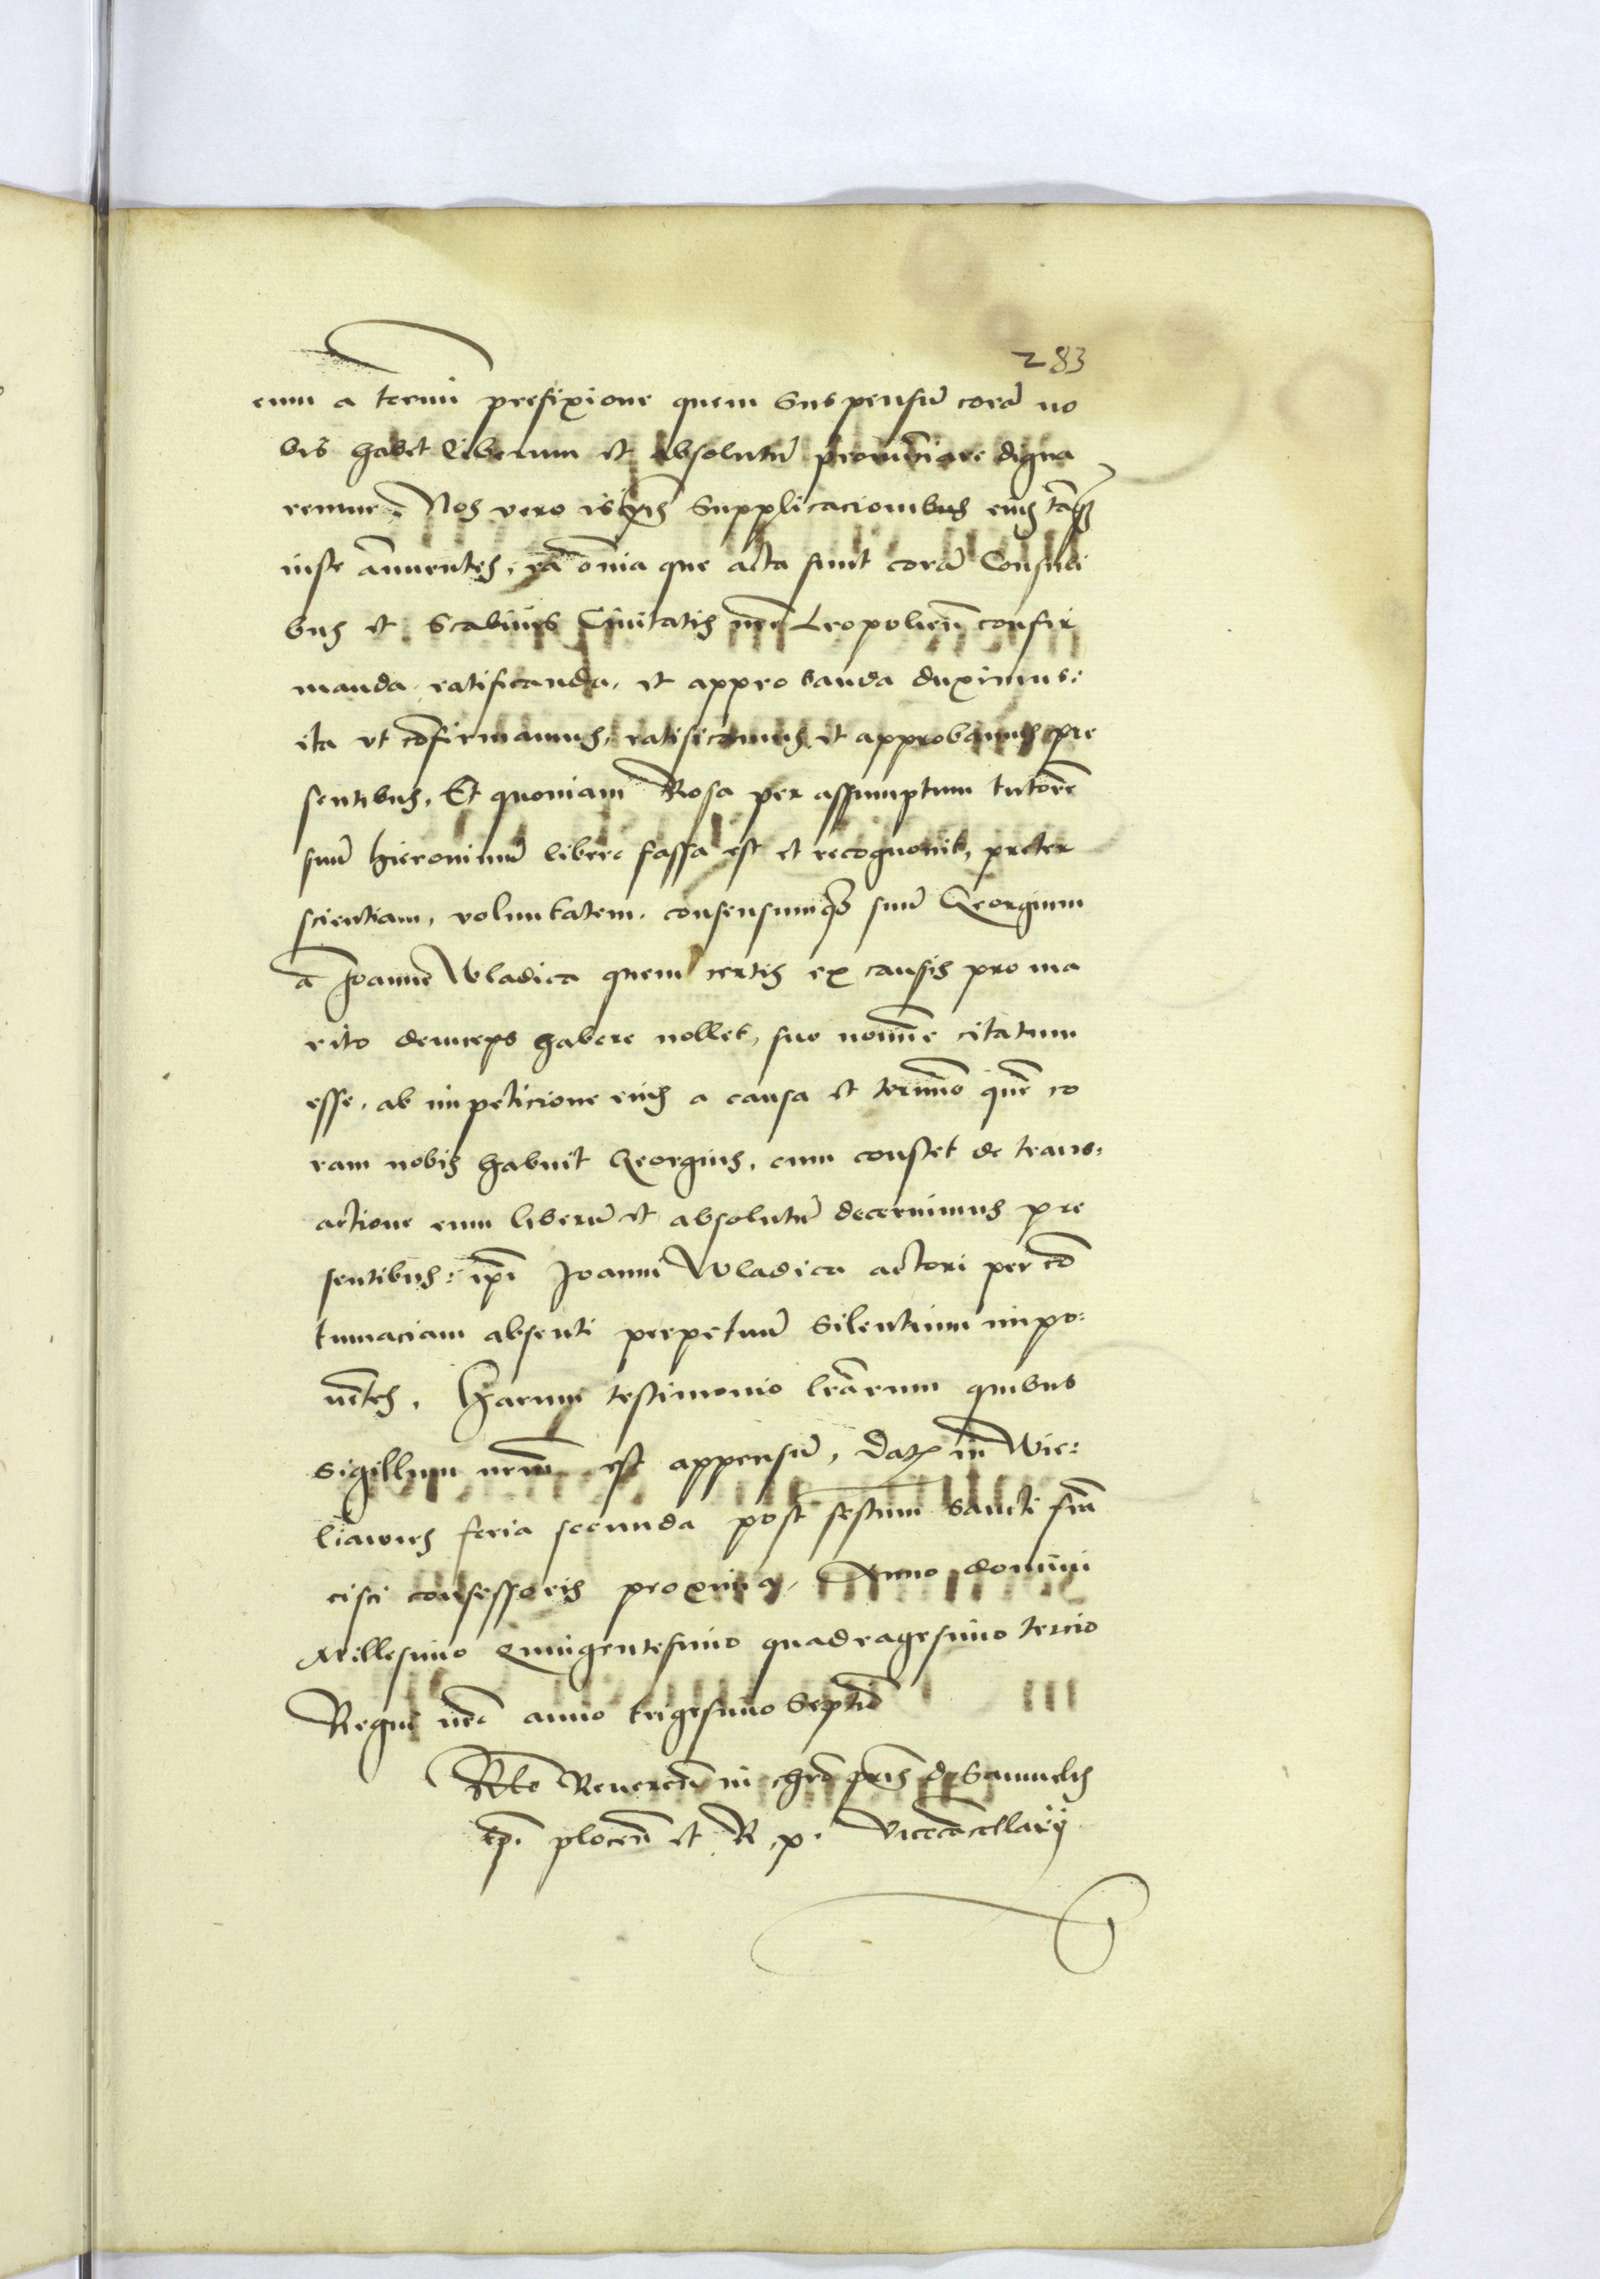 283
eum a termi prefixione quem suspensũ corã no
bis habet liberum et absolutũ pronũciare digna
remur. Nos vero supplicacionibus eius tãqß
iuste annuentes, ea õnia que acta sunt corã Consuli
bus et Scabinis Civitatis nrẽ Leopolieñ confir
manda ratificanda, et approbanda duximus:
ita ut cõfirmamus, ratificamus et approbamus pre
sentibus, Et quoniam Rosa per assumptum tutorẽ
suũ Hieronimũ libere fassa est et recognovit, preter
scientiam, voluntatem, consensumqß suũ Georgium
a Joanne Wladica quem certis ex causis pro ma
rito deinceps habere nollet, suo nomĩe citatum
esse, ab impeticione eius a causa et termĩo quẽ co
ram nobis habuit Georgius, cum constet de trans:
actione eum liberũ et absolutũ decernimus pre
sentibus: ipĩ Joanni Wladica actori per cõ
tumaciam absenti perpetuũ silentium impo:
nẽtes, Harum testimonio lrãrum quibus
sigillum nrm̃ est appensũ, Datꝫ in Wie:
liawies feria secunda post festum Sancti frã
cisci confessoris proxima, Anno domini
Millesimo Quingentesimo quadragesimo tercio
Regni nrĩ anno trigesimo Septiõ
Rlõ Reverẽdi in chrõ pris d. Samuelis
epi. ploceñ et R. p. Vicecãcellarij